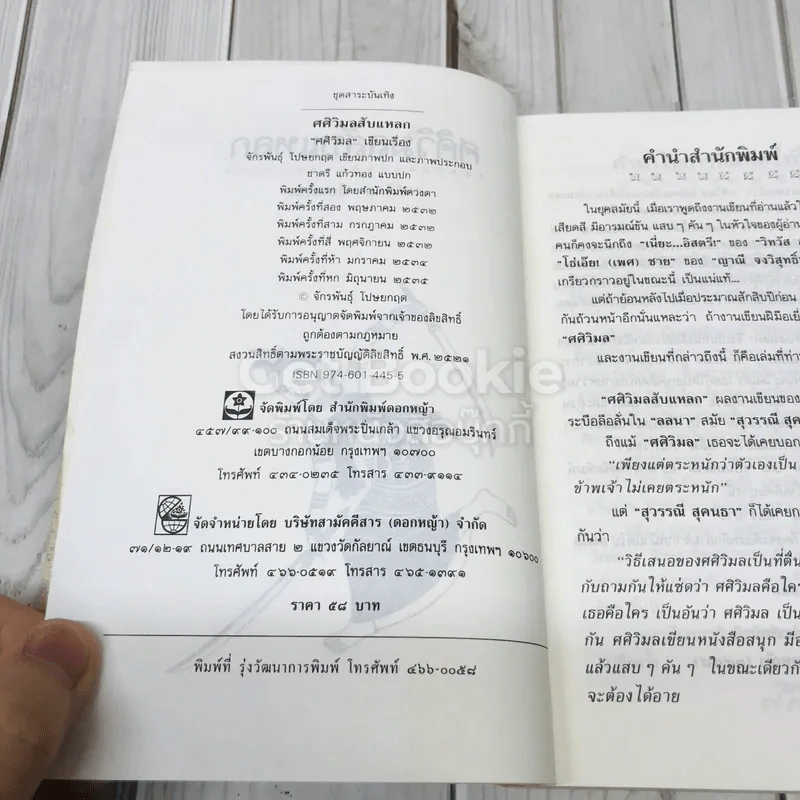 ชุดสาระบันเทิง
ศศิวิมลสับแหลก
"ศศิวิมล" เขียนเรื่อง
จักรพันธุ์ โปษยกฤต เขียนภาพปก และภาพประกอบ
ชาตรี แก้วทอง แบบปก
พิมพ์ครั้งแรก โดยสำนักพิมพ์ดวงตา
พิมพ์ครั้งที่สอง พฤษภาคม ๒๕๓๒
พิมพ์ครั้งที่สาม กรกฎาคม ๒๕๓๒
พิมพ์ครั้งที่สี่ พฤศจิกายน ๒๕๓๒
พิมพ์ครั้งที่ห้า มกราคม ๒๕๓๔
พิมพ์ครั้งที่หก มิถุนายน ๒๕๓๕
© จักรพันธุ์ โปษยกฤต
โดยได้รับการอนุญาตจัดพิมพ์จากเจ้าของลิขสิทธิ์
ถูกต้องตามกฎหมาย
สงวนสิทธิ์ตามพระราชบัญญัติลิขสิทธิ์ พ.ศ. ๒๕๒๑
ISBN 974-601-445-5
จัดพิมพ์โดย สำนักพิมพ์ดอกหญ้า
๔๕๗/๙๙-๑๐๐ ถนนสมเด็จพระปิ่นเกล้า แขวงอรุณอมรินทร์
เขตบางกอกน้อย กรุงเทพฯ ๑๐๗๐๐
โทรศัพท์ ๔๓๔-๐๒๓๕ โทรสาร ๔๓๓-๙๑๑๔
จัดจำหน่ายโดย บริษัทสามัคคีสาร (ดอกหญ้า) จำกัด
๗๑/๑๒-๑๙ ถนนเทศบาลสาย ๒ แขวงวัดกัลยาณ์ เขตธนบุรี กรุงเทพฯ ๑๐๖๐๐
โทรศัพท์ ๔๖๖-๐๕๑๙ โทรสาร ๔๖๕-๑๓๙๑
ราคา ๕๘ บาท
พิมพ์ที่ รุ่งวัฒนาการพิมพ์ โทรศัพท์ ๔๖๖-๐๐๕๘
คำนำสำนักพิมพ์
ในยุคสมัยนี้ เมื่อเราพูดถึงงานเขียนที่อ่านแล้ว
เสียดสี มีอารมณ์ขัน แสบ ๆ คัน ๆ ในหัวใจของผู้อ่าน
คนก็คงจะนึกถึง "เนี่ยะ...อิสตรี!" ของ "วิทวัส
"โธ่เอ๊ย! (เพศ) ชาย" ของ "ญาณี จงวิสุทธิ์
เกรียวกราวอยู่ในขณะนี้ เป็นแน่แท้...
แต่ถ้าย้อนหลังไปเมื่อประมาณสักสิบปีก่อน
กันถ้วนหน้าอีกนั่นแหละว่า ถ้างานเขียนฝีมือ
"ศศิวิมล"
และงานเขียนที่กล่าวถึงนี้ ก็คือเล่มที่
"ศศิวิมลสับแหลก" ผลงานเขียนของ
ระบือลือลั่นใน "ลลนา" สมัย "สุวรรณี
ถึงแม้ "ศศิวิมล" เธอจะได้เคยบอก
"เพียงแต่ตระหนักว่าตัวเองเป็น
ข้าพเจ้าไม่เคยตระหนก"
แต่ "สุวรรณี สุคนธา" ก็ได้เคย
กันว่า
"วิธีเสนอของศศิวิมลเป็นที่ตื่น
กับถามกันให้แซ่ดว่า ศศิวิมลคือใคร
เธอคือใคร เป็นอันว่า ศศิวิมล เป็น
กัน ศศิวิมลเขียนหนังสือสนุก
แล้วแสบ ๆ คัน ๆ ในขณะเดียวกัน
จะต้องได้อาย
GoodBookie